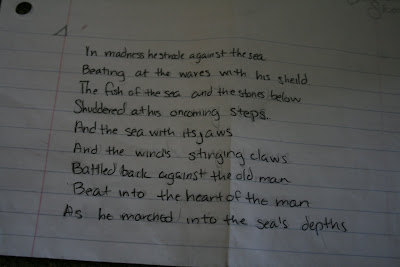 In madness he strode against the sea
Beating at the waves with his sheild
The fish of the sea and the stones below
Shuddered at his oncoming steps.
And the sea with its jaws
And the wind's stinging claws
Battled back against the old man
Beat into the heart of the man
As he marched into the sea's depths